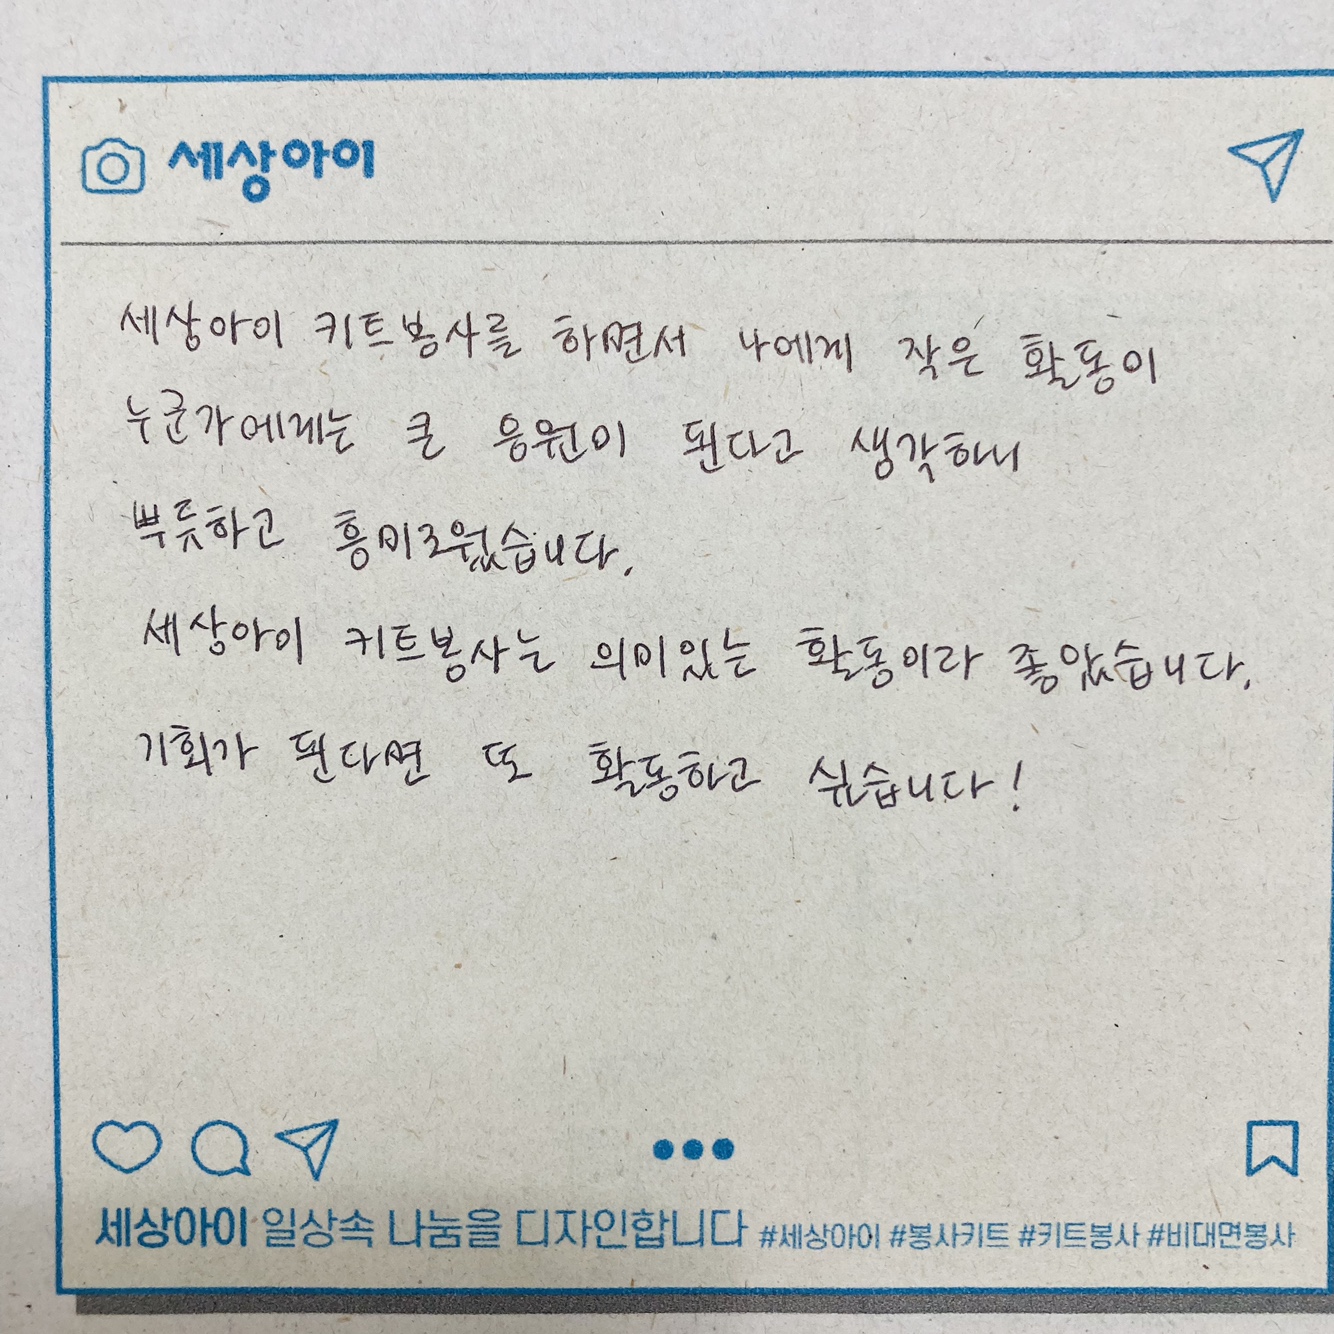 세상아이
세상아이 키트봉사를 하면서 나에게 작은 활동이
누군가에게는 큰 응원이 된다고 생각하니
뿌듯하고 흥미로웠습니다.
세상아이 키트봉사는 의미있는 활동이라 좋았습니다.
기회가 된다면 또 활동하고 싶습니다!
세상아이 일상속 나눔을 디자인합니다 #세상아이 #봉사키트 #키트봉사 #비대면봉사